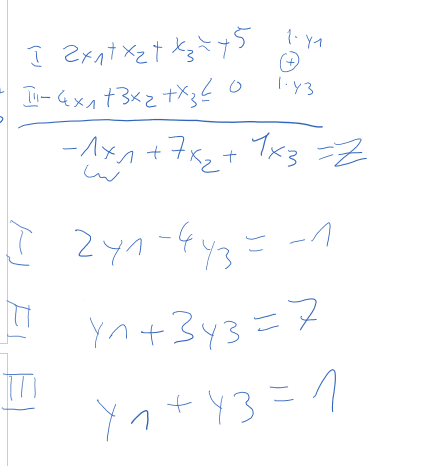 I 2x1+x2+x3≥+5 |·y1
⊕
III-4x1+3x2+x3≤0 |·y3
-1x1+7x2+1x3=Z
I 2y1-4y3=-1
II y1+3y3=7
III y1+y3=1